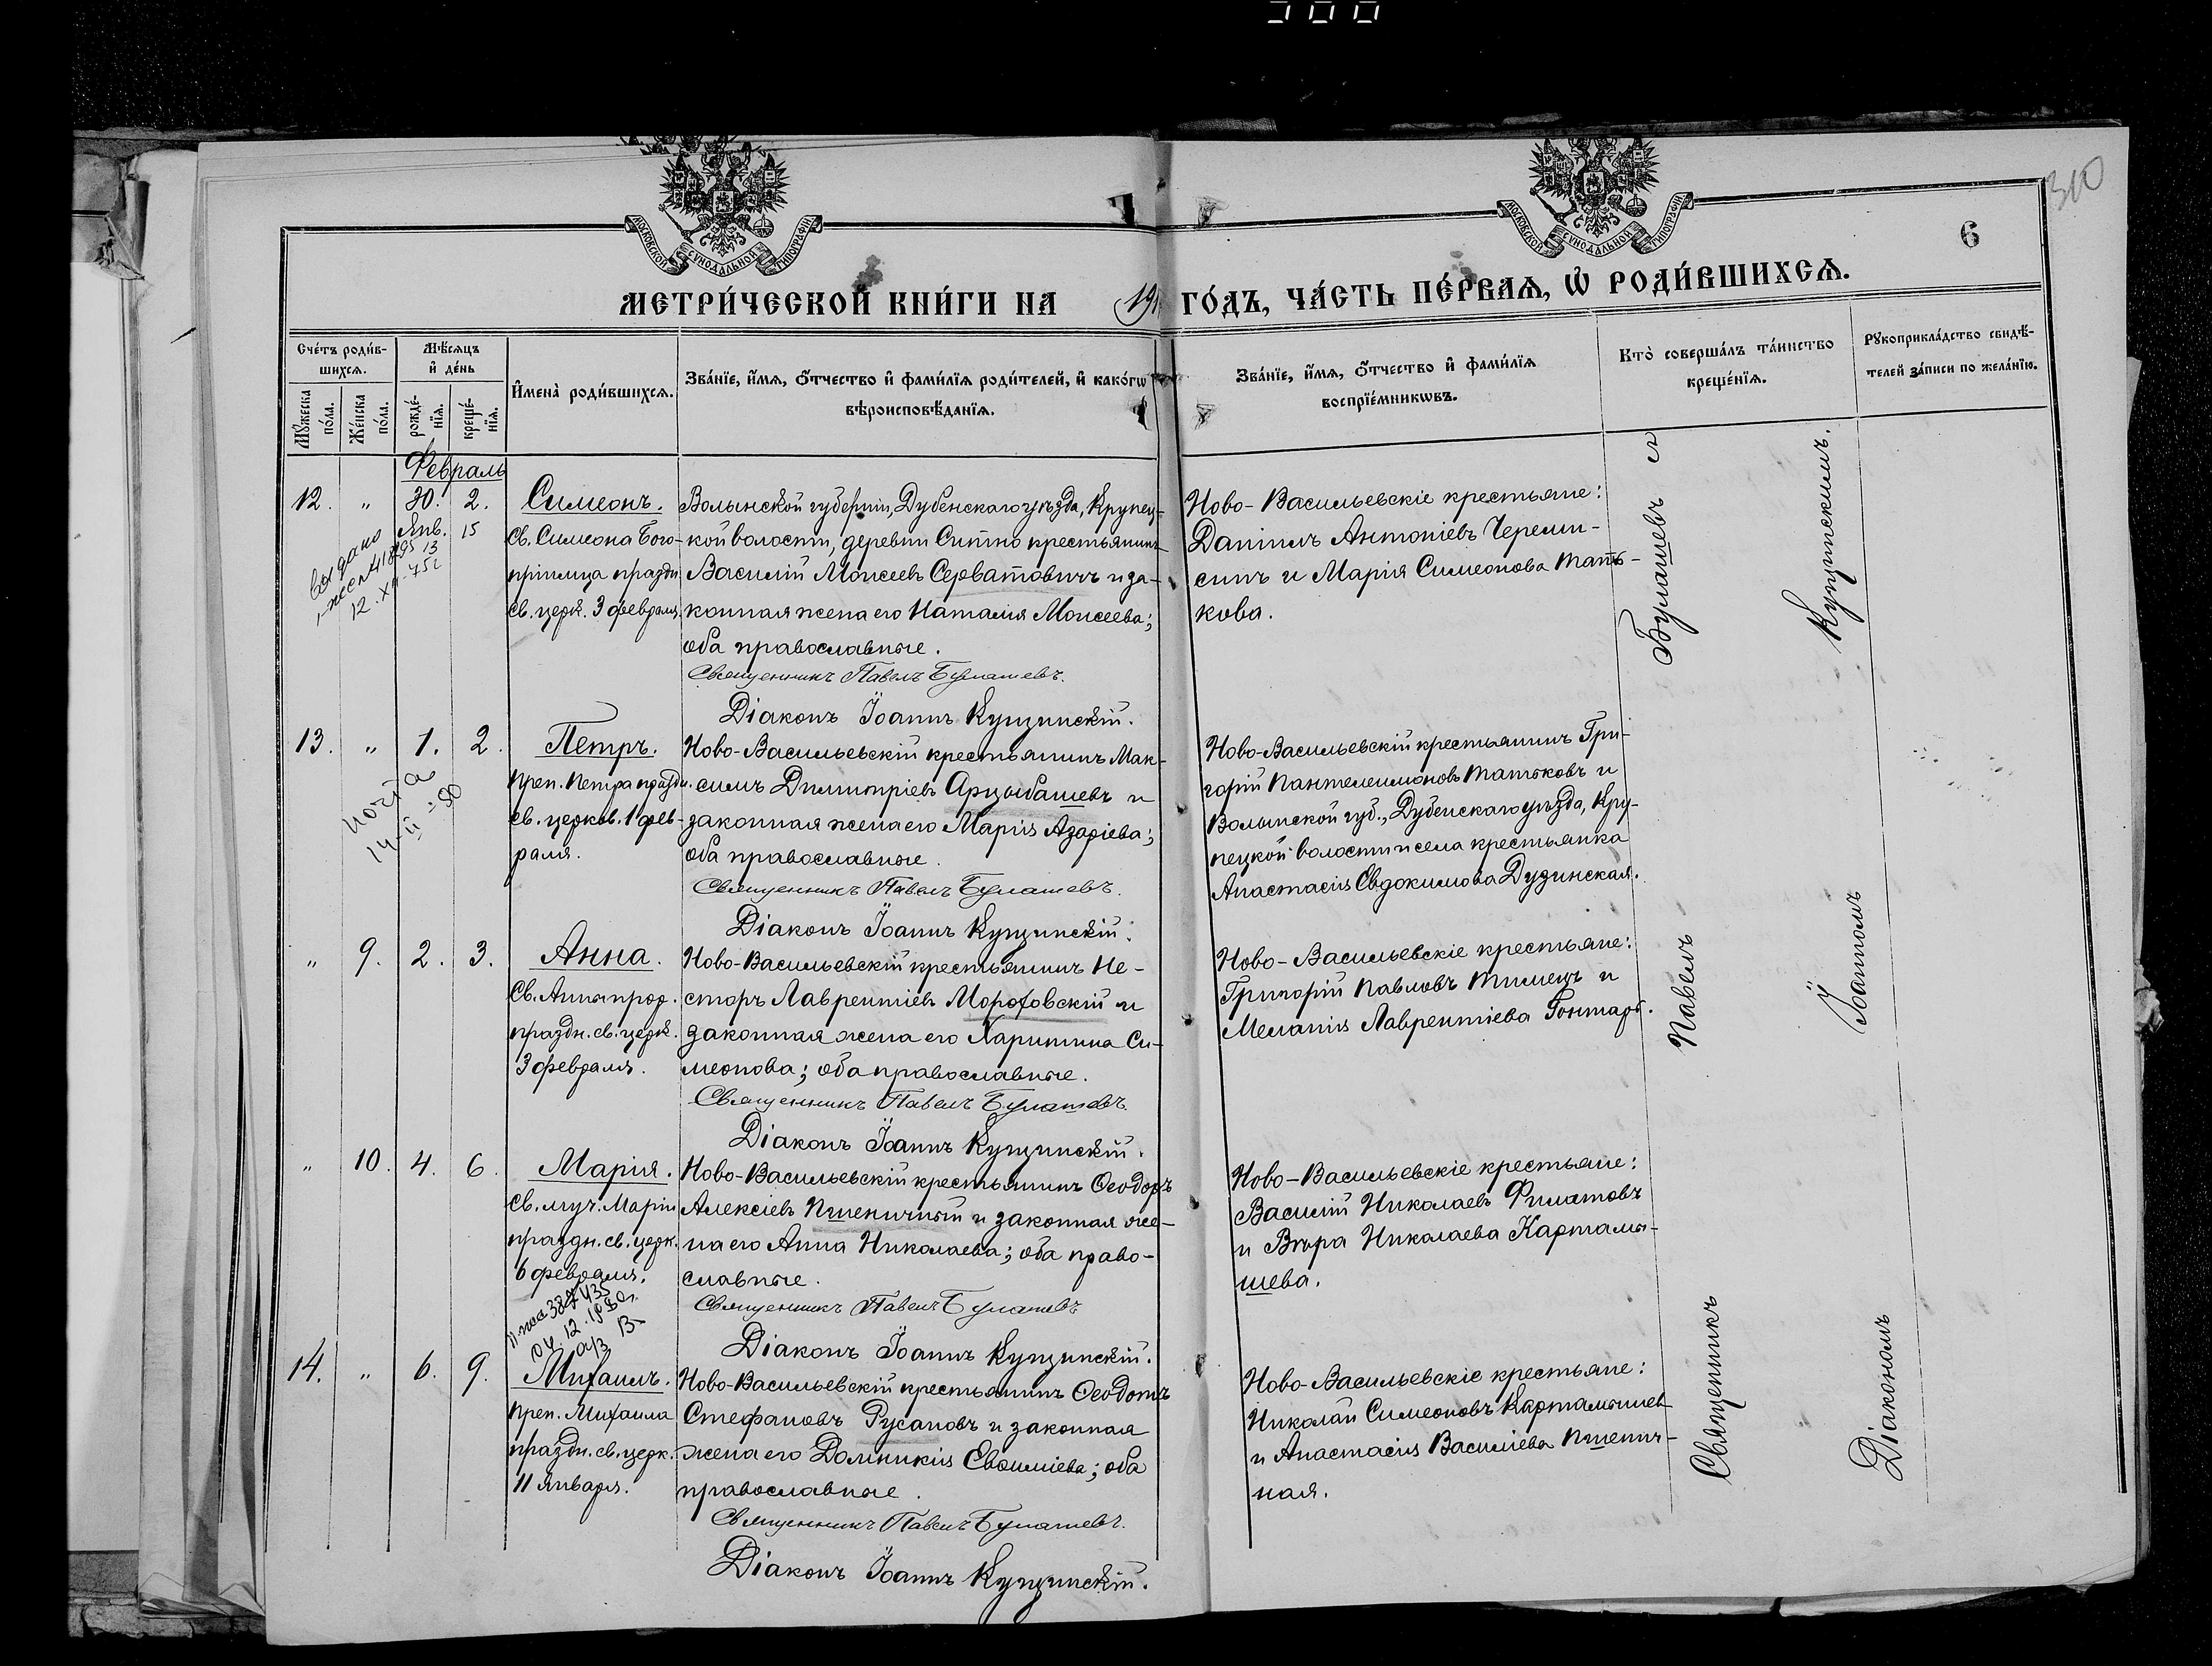 300
310
6
МОСКОВСКОЙ СУНОДАЛЬНОЙ ТИПОГРАФІИ
МОСКОВСКОЙ СУНОДАЛЬНОЙ ТИПОГРАФІИ
МЕТРИ́ЧЕСКОЙ КНИ́ГИ НА 191 ГО́ДЪ, ЧА́СТЬ ПЕ́РВАѦ, Ѡ҆ РОДИ́ВШИХСѦ.
Сче́тъ роди́в-
шихсѧ.
Мꙋ́жеска по́ла.
Же́нска по́ла.
Мѣ́сѧцъ
и҆ де́нь
рожде́-
нїѧ.
креще́-
нїѧ.
И҆мена̀ роди́вшихсѧ.
Зва́нїе, и҆́мѧ, ѻ҆́тчество и҆ фами́лїѧ роди́телей, и҆ како́гѡ
вѣроисповѣ́данїѧ.
Зва́нїе, и҆́мѧ, ѻ҆́тчество и҆ фами́лїѧ
воспрїе́мникѡвъ.
Кто̀ соверша́лъ та́инство
креще́нїѧ.
Рꙋкоприкла́дство свидѣ́-
телей за́писи по жела́нїю.
Февраль
12. " 30. 2. Симеонъ.
Янв. 15
Св. Симеона Бого-
пріимца праздн
св. церк. 3 февраля.
Волынской губерніи, Дубенскаго уѣзда, Крупец-
кой волости, деревни Ситно крестьянинъ
Василій Моисеевъ Серватовичъ и за-
конная жена его Наталія Моисеева;
оба православные.
Священникъ Павелъ Булашевъ.
Діаконъ Іоаннъ Купчинскій.
Ново-Васильевскіе крестьяне:
Даніилъ Антоніевъ Череми-
синъ и Марія Симеонова Тать-
кова.
выдано
13. " 1. 2. Петръ.
Преп. Петра праздн.
св. церков. 1 фев-
раля.
Ново-Васильевскій крестьянинъ Мак-
симъ Димитріевъ Арцыбашевъ и
законная жена его Марія Азаріева;
оба православные.
Священникъ Павелъ Булашевъ.
Діаконъ Іоаннъ Купчинскій.
Ново-Васильевскій крестьянинъ Гри-
горій Пантелеимоновъ Татьковъ и
Волынской губ., Дубенскаго уѣзда, Кру-
пецкой волости и села крестьянка
Анастасія Евдокимова Дудинская.
" 9. 2. 3. Анна.
Св. Анны прор.
праздн. св. церк.
3 февраля.
Ново-Васильевскій крестьянинъ Не-
сторъ Лаврентіевъ Мороховскій и
законная жена его Харитина Си-
меонова; оба православные.
Священникъ Павелъ Булашевъ.
Діаконъ Іоаннъ Купчинскій.
Ново-Васильевскіе крестьяне:
Григорій Павловъ Тимецъ и
Меланія Лаврентіева Гонтарь.
" 10. 4. 6. Марія.
Св. муч. Маріи
праздн. св. церк.
6 февраля.
Ново-Васильевскій крестьянинъ Ѳеодоръ
Алексіевъ Пшеничный и законная же-
на его Анна Николаева; оба право-
славные.
Священникъ Павелъ Булашевъ
Діаконъ Іоаннъ Купчинскій.
Ново-Васильевскіе крестьяне:
Василій Николаевъ Филатовъ
и Вѣра Николаева Картамы-
шева.
14. " 6. 9. Михаилъ.
Преп. Михаила
праздн. св. церк.
11 января.
Ново-Васильевскій крестьянинъ Ѳеодотъ
Стефановъ Русановъ и законная
жена его Домникія Евѳиміева; оба
православные.
Священникъ Павелъ Булашевъ.
Діаконъ Іоаннъ Купчинскій.
Ново-Васильевскіе крестьяне:
Николай Симеоновъ Картамышев
и Анастасія Василіева Пшенич-
ная.
Священникъ Павелъ Булашевъ съ
Діакономъ Іоанномъ Купчинскимъ.